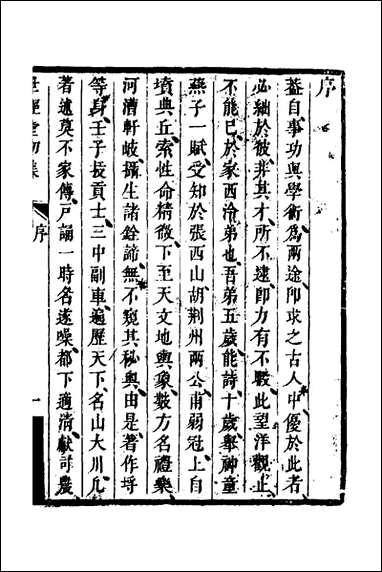 序
蓋自事功與學術為兩途即求之古人中優於此者
必絀於彼非其才所不逮即力有不暇此望洋觀止
不能已於家西泠弟也吾弟五歲能詩十歲舉神童
燕子一賦受知於張西山胡荆州兩公甫弱冠上自
墳典丘索性命精微下至天文地輿象數方名禮樂
河漕軒岐攝生諸銓諦無不窺其秘奧由是著作埒
等身壬子拔貢士三中副車遍歷天下名山大川凡
著述莫不家傳戶誦一時名遂噪都下適清獻農
世經堂初集 序 一